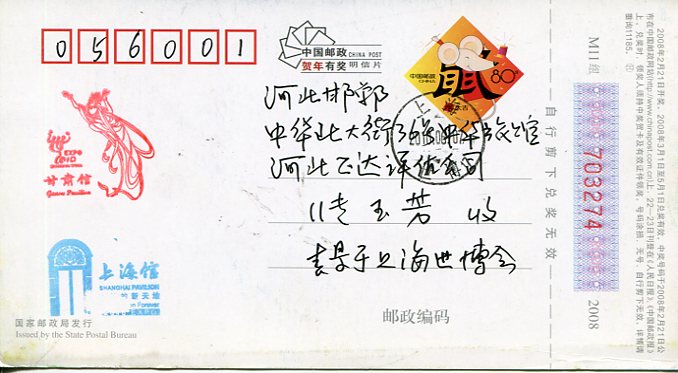 056001
中国邮政 CHINA POST
贺年有奖 明信片
中国邮政
CHINA
鼠
80分
河北邯郸
中华北大街
河北正达评估公司
玉芳 收
寄于上海世博会
EXPO
2010
甘肃馆
Gansu Pavilion
上海馆
SHANGHAI PAVILION
的新天地
Forever
国家邮政局发行
Issued by the State Postal Bureau
邮政编码
自行剪下兑奖无效
M11组
703274
2008
2008年2月21日开奖。2008年3月1日至5月1日兑奖有效。中奖号码于2008年2月21日公
布在中国邮政网站(http://www.chinapost.com.cn)上，22-23日刊登在《人民日报》、《中国邮政报》
上。兑奖时，领奖人须持中奖贺卡及有效证件领奖，号码涂损、无号、自行剪下无效，详情请
垂询11185。